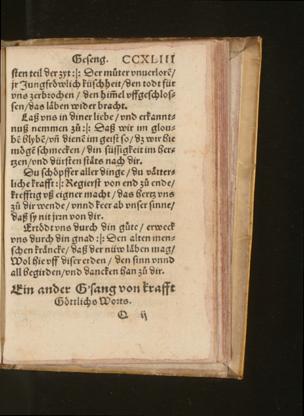 Geseng. CCXLIII
sten teil der zyt :|: Der můter vnuerlorē/
jr Jungfröwlich küschheit/den todt für
vns zerbrochen / den him̄el vffgeschlos-
sen/das läben wider bracht.
Laß vns in diner liebe / vnd erkannt-
nuß nemmen zů :|: Daß wir im glou-
bē blybē/vn̄ dienē im geist so/dz wir hie
mögē schmecken / din süssigkeit im her-
tzen/vnd dürsten stäts nach dir.
Du schöpffer aller dinge / du vätter-
liche krafft :|: Regierst von end zů ende/
krefftig vß eigner macht / das hertz vns
zů dir wende / vnnd keer ab vnser sinne/
daß sy nit jrrn von dir.
Ertödt vns durch din güte / erweck
vns durch din gnad :|: Den alten men-
schen kräncke / daß der nüw läben mag/
Wol hie vff diser erden / den sinn vnnd
all begirden/vnd dancken han zů dir.
Ein ander Gsang von krafft
Göttlichs Worts.
Q ij